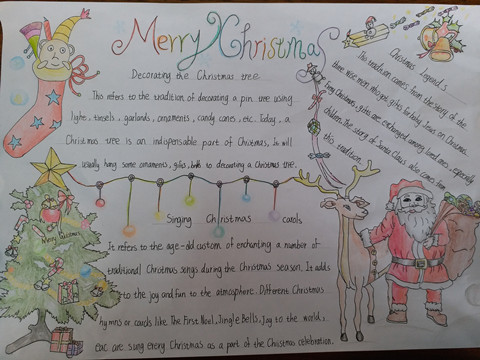 Merry Christmas
Decorating the Christmas tree
This refers to the tradition of decorating a pin tree using
light, tiesels, garlands, ornaments, candy canies, etc. Today, a
Christmas tree is an indispensable part of Chirstmas, It will
usually hang some ornaments, gifts, to decorating a Christmas tree.
Christmas Legend's
This tradition comes from the story of the
three wise men who got gifts for baby Jesus on Christmas.
Every Christmas, gifts are exchanged among loved ones, especially
children, the story of Santa Claus also comes from
this tradition.
Singing Christmas carols
It refers to the age-old custom of enchanting a number of
traditional Christmas songs during the Christmas season. It adds
to the joy and fun to the atmosphere. Different Christmas
hymns or carols like The First Noel, Jingle Bells, Joy to the world,
are sung every Christmas as a part of the Christmas celebration.
Merry Christmas